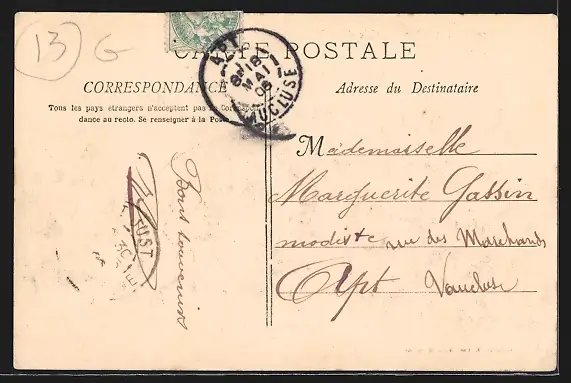 13 G
CARTE POSTALE
CORRESPONDANCE
Tous les pays étrangers n'acceptent pas la Correspon-
dance au recto. Se renseigner à la Poste
Adresse du Destinataire
APT
8E 18
MAI
06
VAUCLUSE
Mademoiselle
Marguerite Gassin
modiste rue des Marchands
Apt Vaucluse
Bons souvenirs
UST